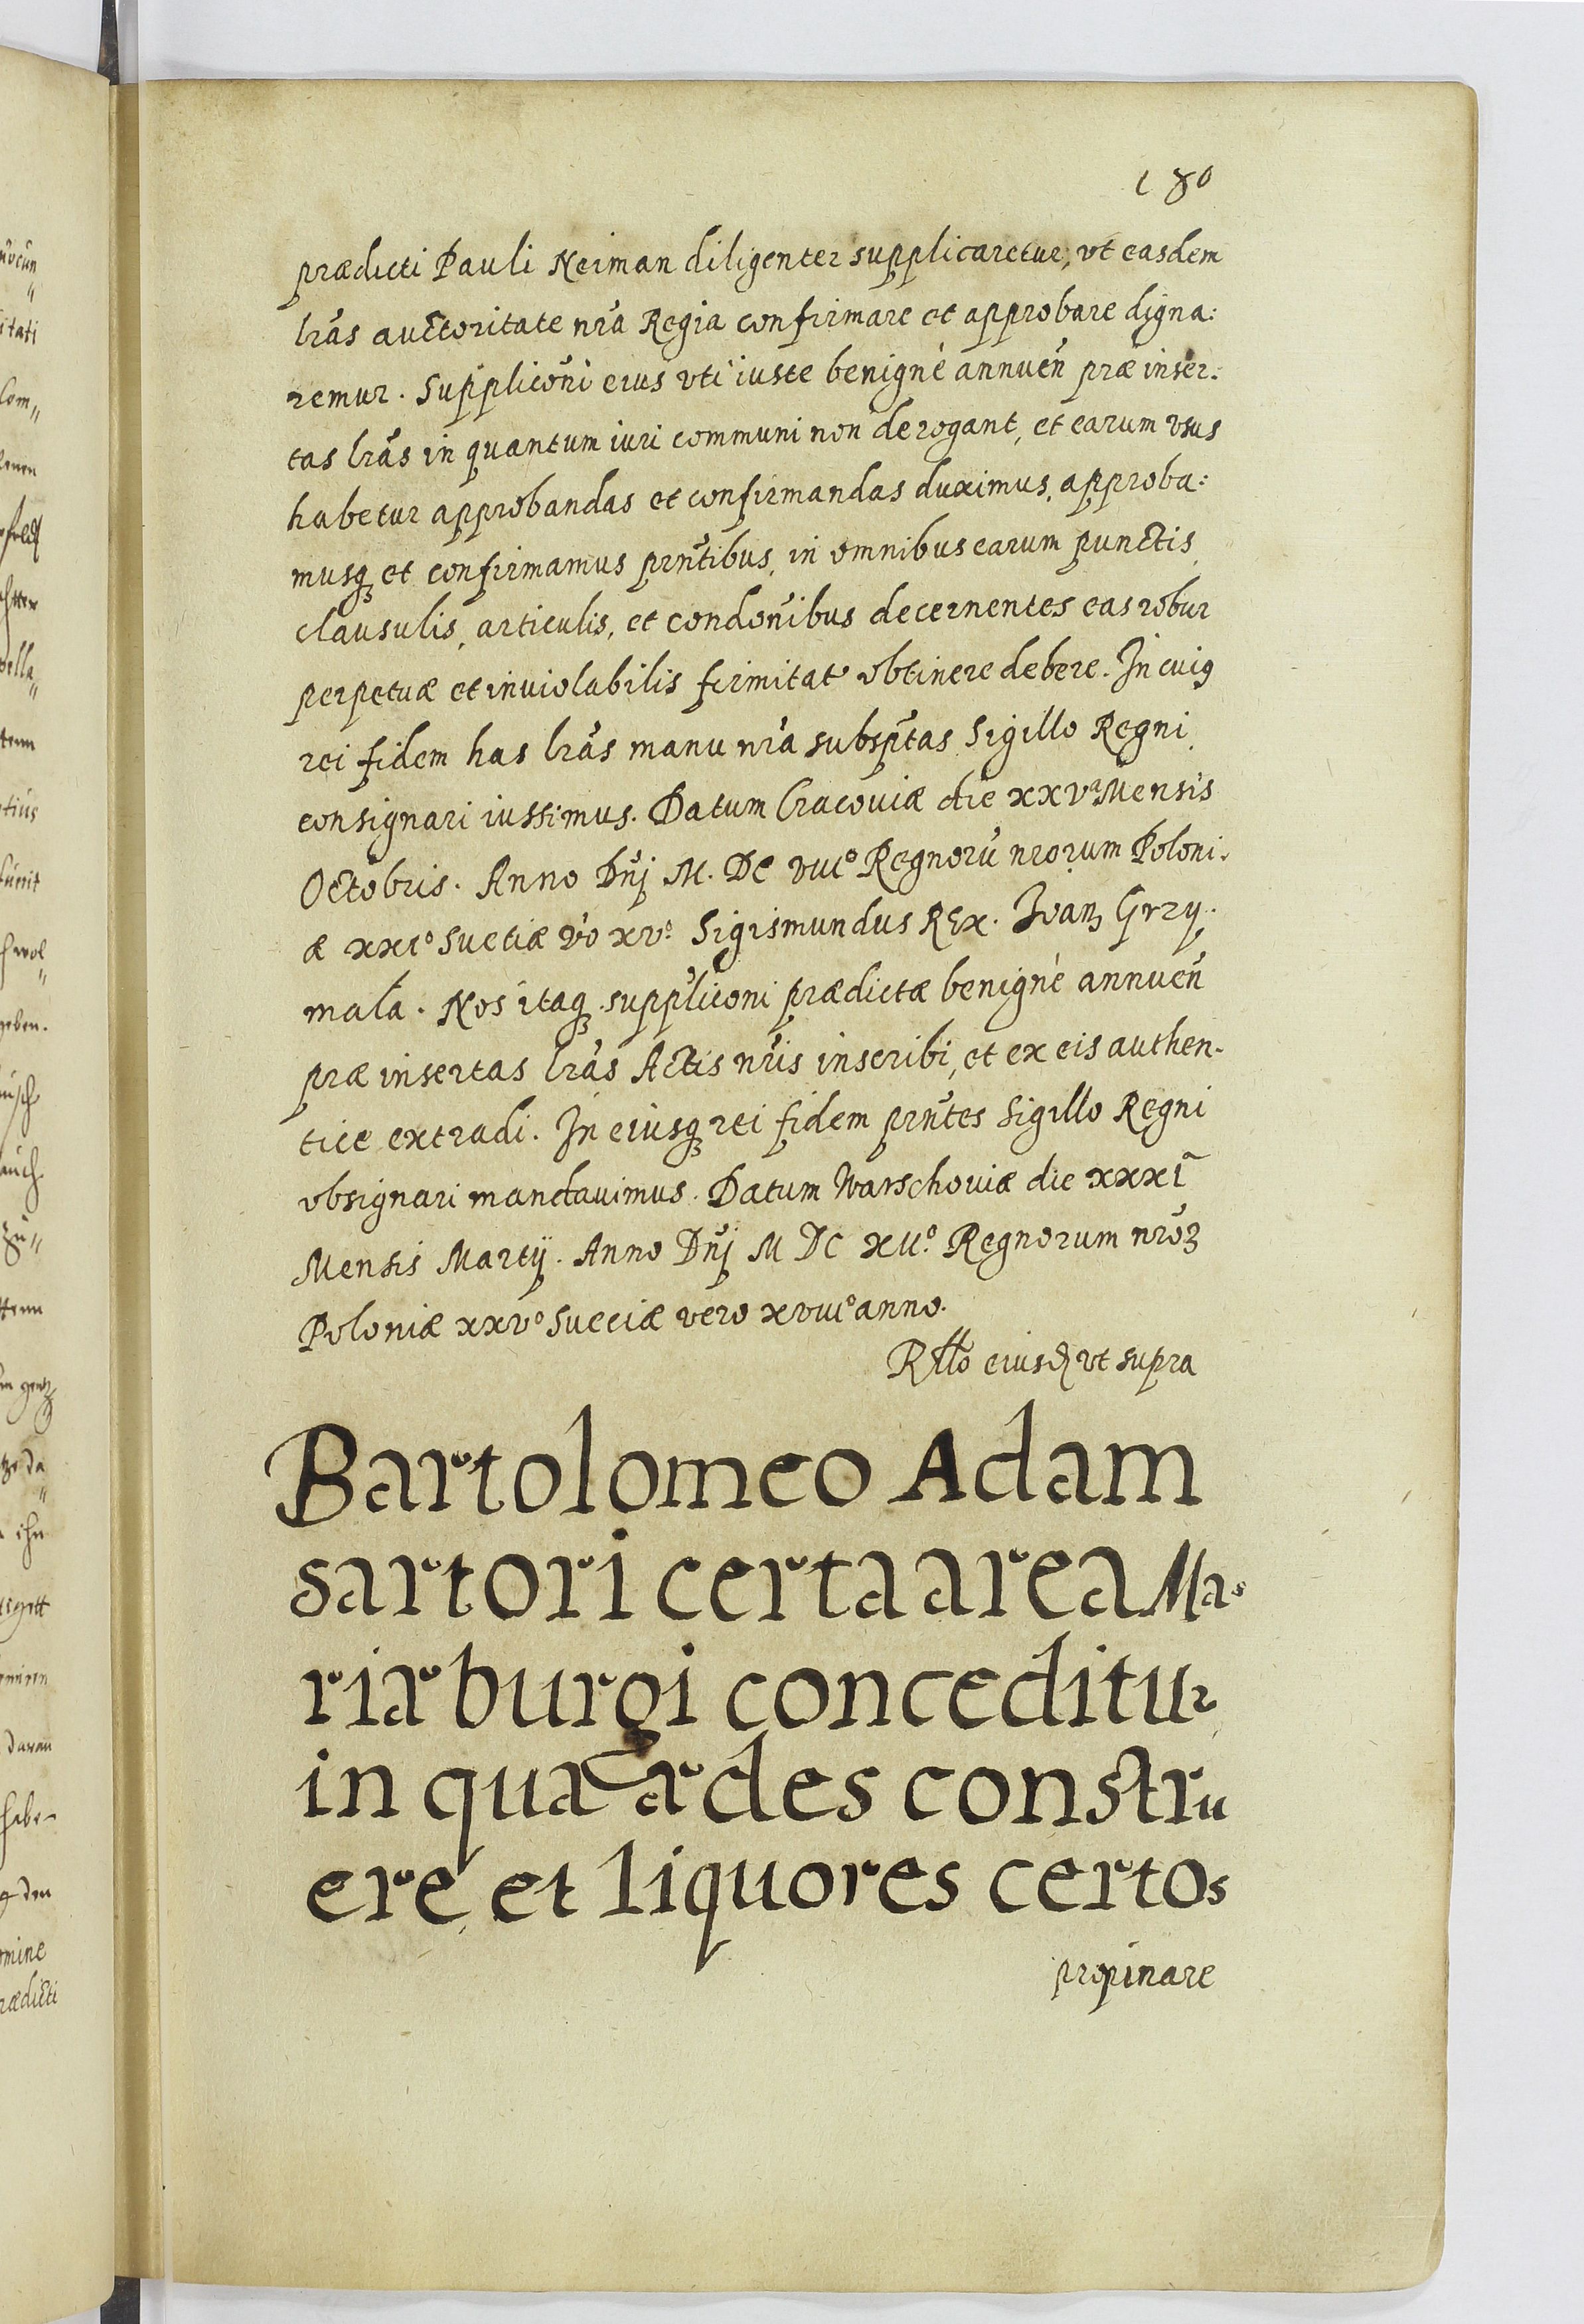 180
prædicti Pauli Neiman diligenter supplicaretur, vt easdem
lrãs auctoritate nrã Regia confirmare et approbare digna:
remur. Suppliconi eius vti iuste benignè annuen̄ præinser:
tas lrãs in quantum iuri communi non derogant, et earum vsus
habetur approbandas et confirmandas duximus, approba:
musq̨ et confirmamus prntibus, in omnibus earum punctis,
clausulis, articulis, et condonibus decernentes eas robur
perpetuæ et inuiolabilis firmitat obtinere debere. In cuiꝯ
rei fidem has lrãs manu nrã subsptas Sigillo Regni
consignari iussimus. Datum Cracouiæ die xxvᵃ Mensis
Octobris. Anno Dnj M. DC viiiº Regnorũ nrorum Poloni.
æ xxiº Suetiæ vo xvº Sigismundus REx. Ioan̨ Grzy.
mala. Nos itaq̨ suppliconi prædictæ benignè annuen̄
præinsertas lrãs Actis nris inscribi, et ex eis authen.
tice extradi. In eiusq̨ rei fidem prntes Sigillo Regni
obsignari mandauimus. Datum Warschouiæ die xxxi
Mensis Martij. Anno Dnj M DC xiiº. Regnorum nroꝝ
Poloniæ xxvº Sueciæ vero xviiiº anno.
Rtto eiusd vt supra
Bartolomeo Adam
sartori certa area Ma-
riæburgi conceditur
in qua ædes constru
ere et liquores certos
propinare